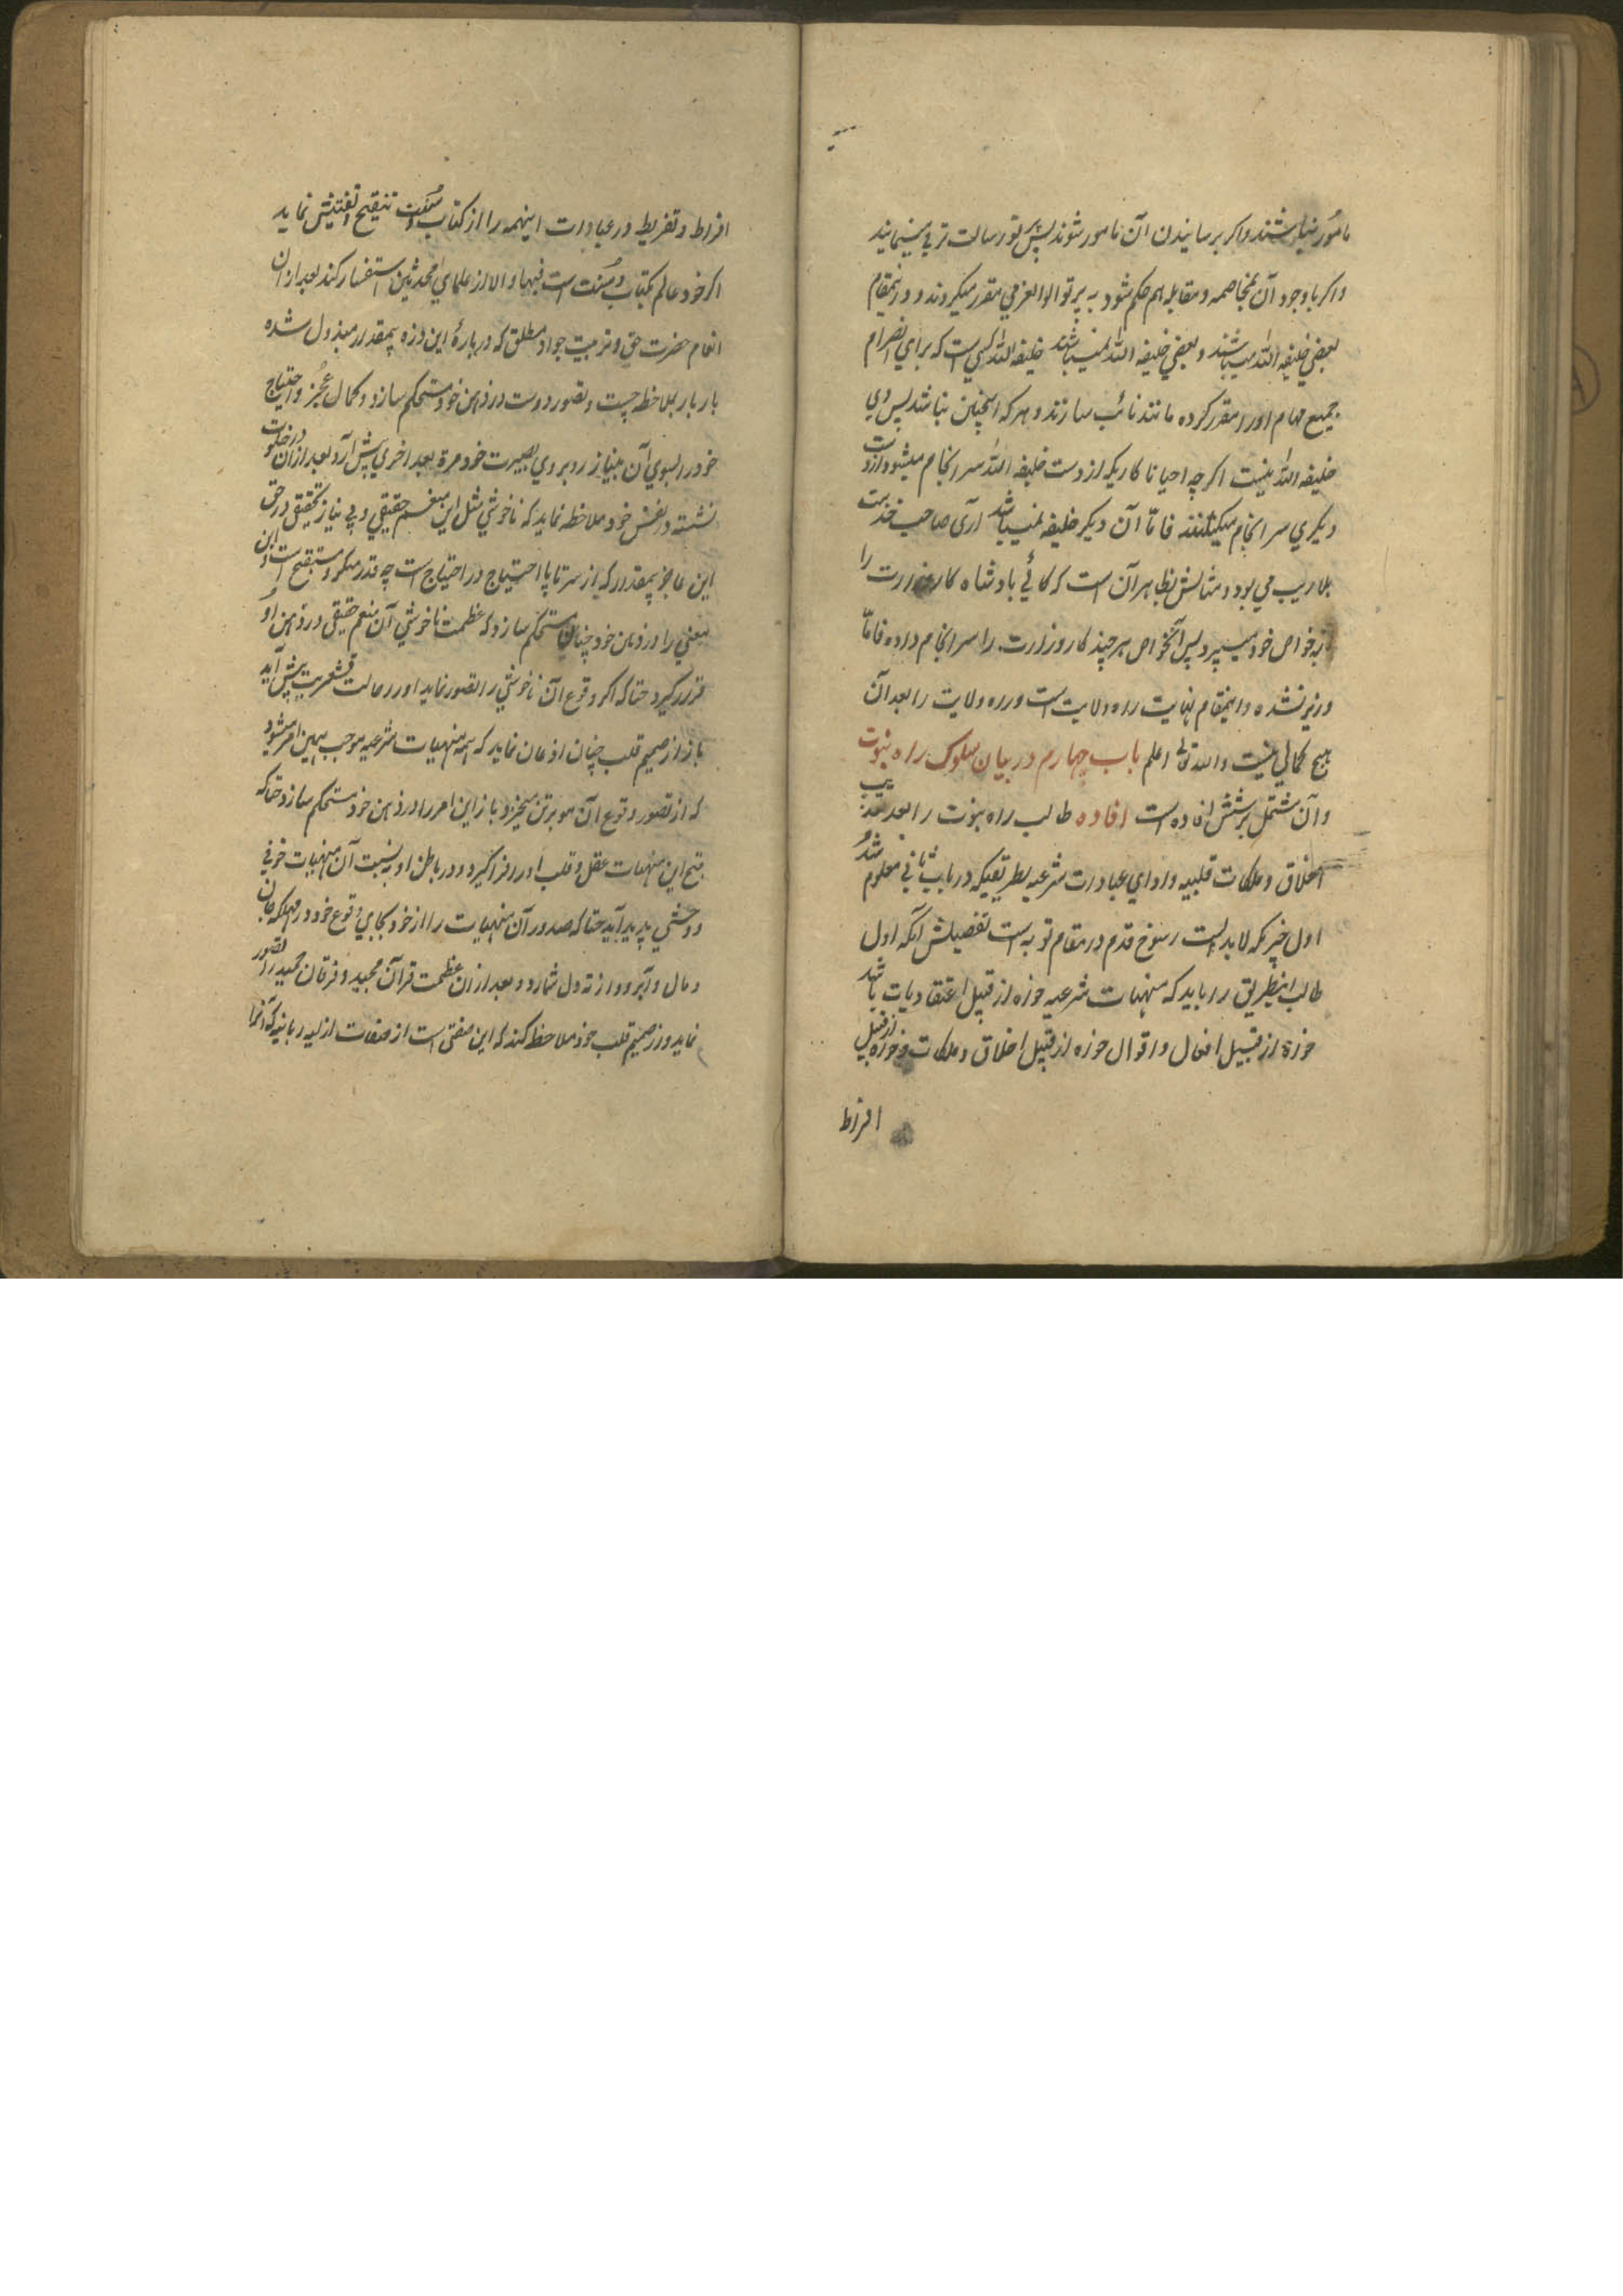 مامور نباشند و اکر برسانیدن آن مامور شوند پس پرتو رسالت تربیت مینمایند
و اکر باوجود آن بمخاصمه و مقابله هم حکم شود به پرتو اولوالعزمی مقرر میکردند و درینمقام
بعضی خلیفه الله میباشند و بعضی خلیفه الله نمیباشند خلیفه الله کسی است که برای انصرام
جمیع مهام او را مقرر کرده مانند نائب سازند و هر که اینچنین نباشد پس وی
خلیفه الله نیست اکرچه احیانا کاریکه از دست خلیفه الله سرانجام میشود از دست
دیکری سرانجام میکنند فاما آن دیکر خلیفه نمیباشد آری صاحب خدمت
بلاریب می بود و مثالش بظاهر آن است که کاهی بادشاه کار وزارت را
بخواص خود میسپرد پس آنخواص هرچند کار وزارت را سرانجام داده فاما
وزیر نشده و اینمقام نهایت راه ولایت است و راه ولایت را بعد آن
هیچ کمالی نیست والله تعالی اعلم باب چهارم در بیان سلوک راه نبوت
و آن مشتمل بر شش افاده است افاده طالب راه نبوت را بعد تهذیب
اخلاق و ملکات قلبیه و ادای عبادات شرعیه بطریقیکه در باب ثانی معلوم شد
اول چیزیکه لابد است رسوخ قدم در مقام توبه است تفصیلش آنکه اول
طالب اینطریق را باید که منهیات شرعیه خواه از قبیل اعتقادیات باشد
خواه از قبیل افعال و اقوال خواه از قبیل اخلاق و ملکات و خواه از قبیل
افراط
افراط و تفریط در عبادات اینهمه را از کتاب و سنت تنقیح و تفتیش نماید
اکر خود عالم بکتاب و سنت است فبها و الا از علمای محدثین استفسار کند بعد ازان
انعام حضرت حق و تربیت جواد مطلق که درباره این ذره بیمقدار مبذول شده
بار بار بملاحظه چست و تصور درست در ذهن خود مستحکم سازد و کمال عجز و احتیاج
خود را بسوی آن بینیاز روبروی بصیرت خود مرة بعد اخری پیش آرد بعد ازان در خلوت
نشسته در نفس خود ملاحظه نماید که ناخوشی مثل این منعم حقیقی و بی نیاز تحقیقی در حق
این عاجز بیمقدار که از سر تا پا احتیاج در احتیاج است چه قدر منکر و مستقبح است و این
معنی را در ذهن خود چنان مستحکم سازد که عظمت ناخوشی آن منعم حقیقی در ذهن او
قرار کیرد حتا که اکر وقوع آن ناخوشی را تصور نماید او را حالت قشعریرت پیش آید
باز از صمیم قلب چنان اذعان نماید که همه منهیات شرعیه موجب همین امر میشود
که از تصور وقوع آن مو بر تن میخیزد باز این امر را در ذهن خود مستحکم سازد حتا که
قبح این منهیات عقل و قلب او را فرا کیرد و در باطن او به نسبت آن منهیات خوفی
و وحشتی پدید آید حتا که صدور آن منهیات را از خود بجای وقوع خود در مهلکه جان
و مال و آبرو از ته دل شمارد و بعد ازان عظمت قرآن مجید و فرقان حمید را تصور
نماید و از صمیم قلب خود ملاحظه کند که این صفتی است از صفات ازلیه ربانیه که آنرا